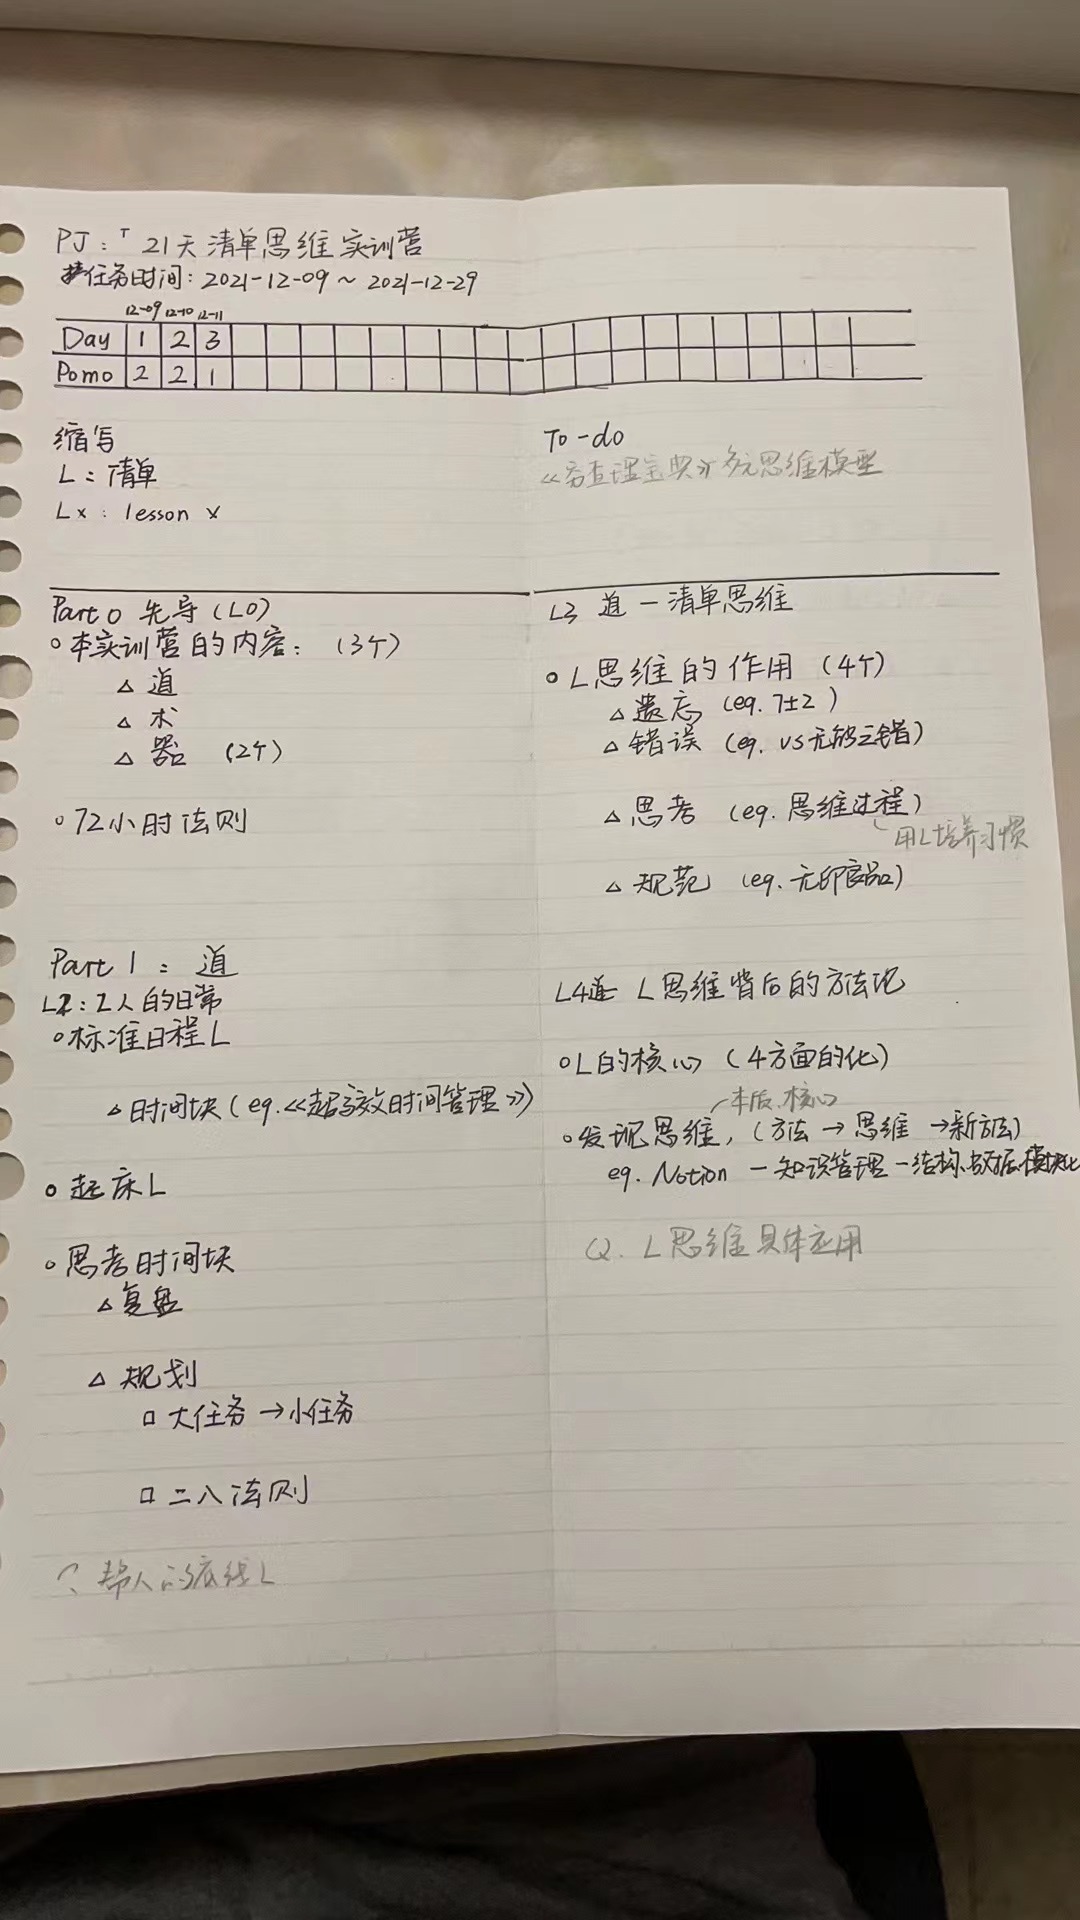 PJ：「21天清单思维实训营
任务时间：2021-12-09 ~ 2021-12-29
12-09 12-10 12-11
Day 1 2 3
Pomo 2 2 1
缩写
L：清单
Lx：lesson x
To-do
《穷查理宝典》多元思维模型
Part 0 先导（L0）
○本实训营的内容：（3个）
△ 道
△ 术
△ 器 （2个）
○72小时法则
Part 1：道
L2：L人的日常
○标准日程L
△时间块（eg.《超高效时间管理》）
○起床L
○思考时间块
△复盘
△ 规划
□ 大任务→小任务
□ 二八法则
人的底线L
L3 道－清单思维
○L思维的作用（4个）
△遗忘（eg. 7±2）
△错误（eg. vs无能之错）
△思考（eg. 思维过程）
用L培养习惯
△规范（eg. 无印良品）
L4道 L思维背后的方法论
○L的核心（4方面的化）
本质、核心
○发现思维，（方法→思维→新方法）
eg. Notion－知识管理－结构、数据、模块化
Q. L思维具体应用